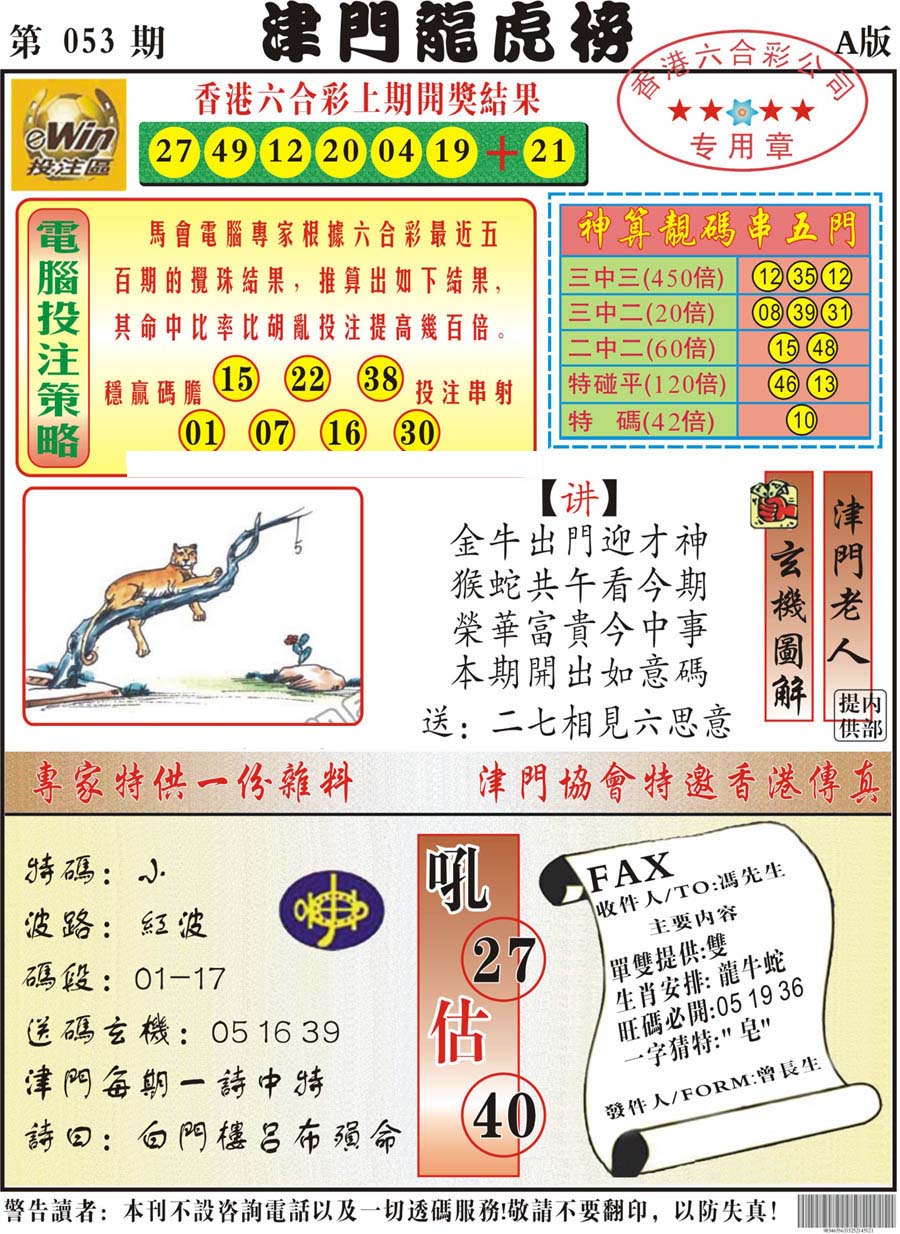 第 053 期
津門龍虎榜
A版
香港六合彩公司
专用章
eWin
投注區
香港六合彩上期開獎結果
27 49 12 20 04 19 + 21
電腦投注策略
馬會電腦專家根據六合彩最近五
百期的攪珠結果，推算出如下結果，
其命中比率比胡亂投注提高幾百倍。
穩贏碼膽 15 22 38 投注串射
01 07 16 30
神算靚碼串五門
三中三(450倍) 12 35 12
三中二(20倍) 08 39 31
二中二(60倍) 15 48
特碰平(120倍) 46 13
特 碼(42倍) 10
5
【讲】
金牛出門迎才神
猴蛇共午看今期
榮華富貴今中事
本期開出如意碼
送：二七相見六思意
玄機圖解
津門老人
内部提供
專家特供一份雜料
津門協會特邀香港傳真
特碼：小
波路：紅波
碼段：01-17
送碼玄機：05 16 39
津門每期一詩中特
詩曰：白門樓呂布殞命
吼
27
估
40
FAX
收件人/TO:馮先生
主要内容
單雙提供:雙
生肖安排: 龍牛蛇
旺碼必開:05 19 36
一字猜特:"皂"
發件人/FORM:曾長生
警告讀者：本刊不設咨詢電話以及一切透碼服務!敬請不要翻印，以防失真！